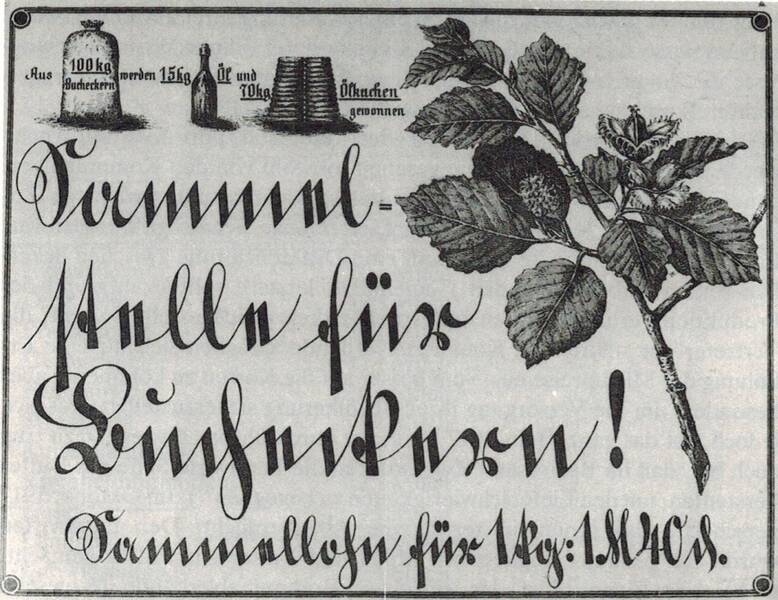 Aus 100kg Bucheckern werden 15kg Öl und 70kg Ölkuchen gewonnen
Sammel-
stelle für
Bucheckern!
Sammellohn für 1kg: 1M40₰.